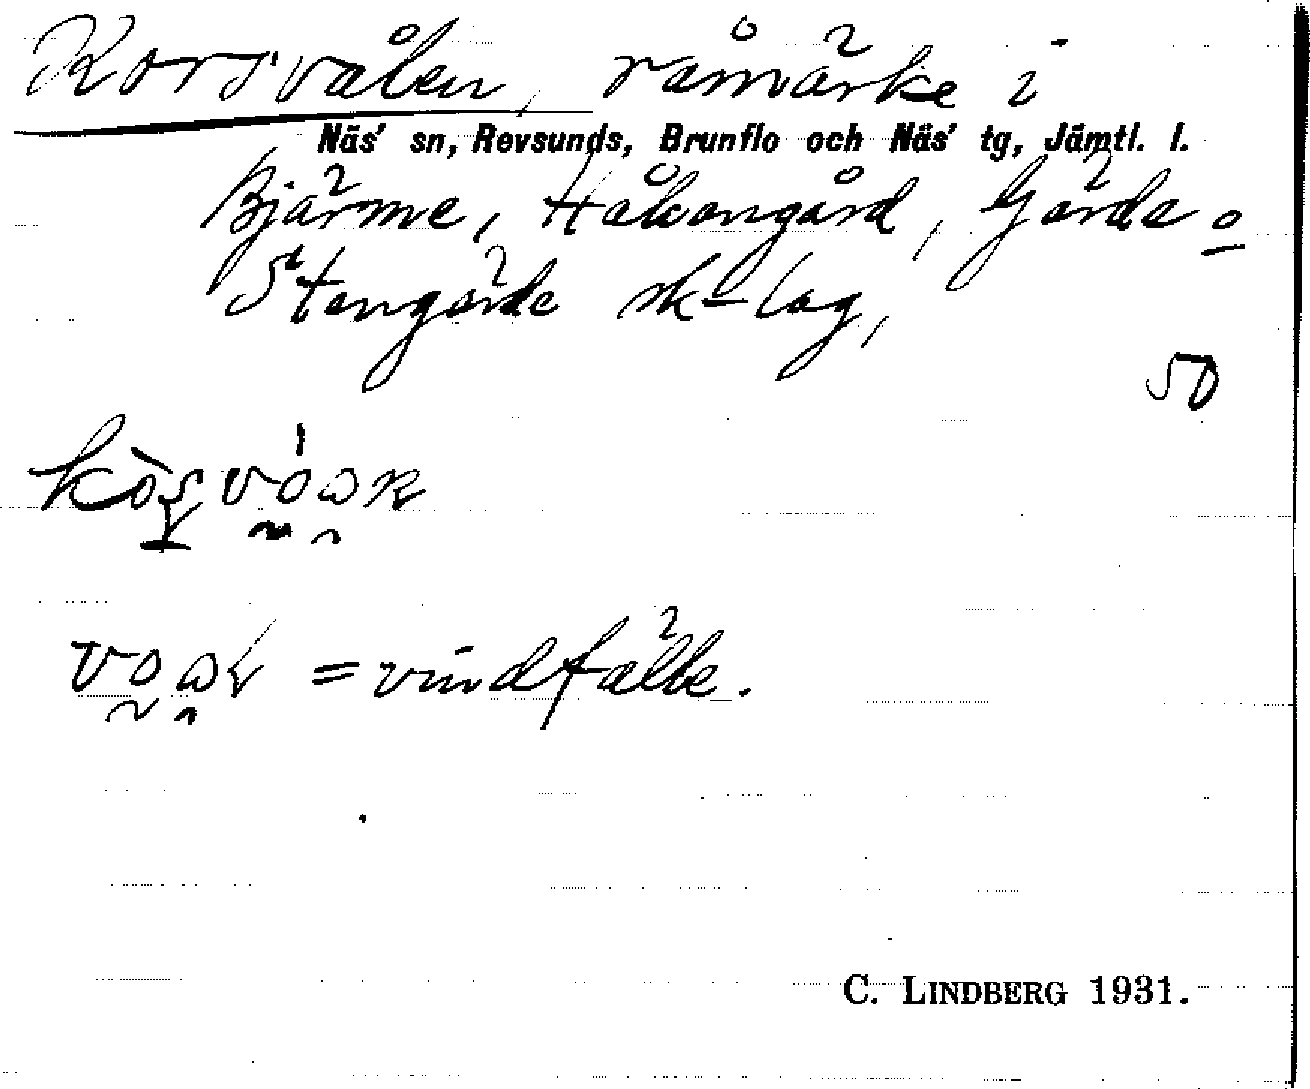 Korsvålen, råmärke i
Näs' sn, Revsunds, Brunflo och Näs' tg, Jämtl. l.
Bjärme, Håkongård, Gärde o
Stengärde sk-lag,
50
= vindfälle.
C. LINDBERG 1931.